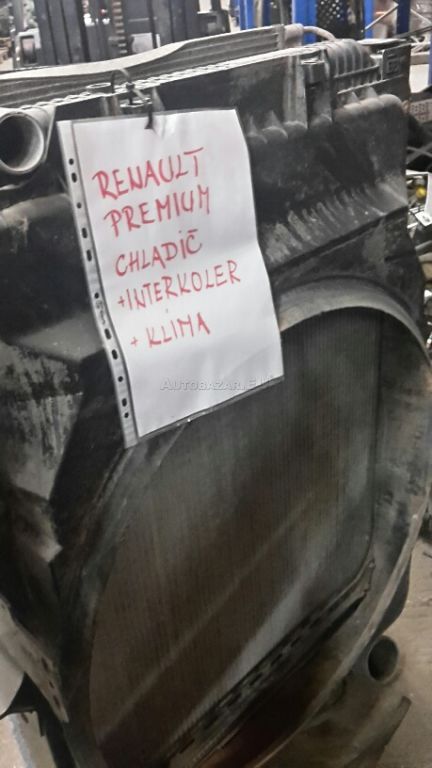 RENAULT
PREMIUM
CHLADIČ
+INTERKOLER
+ KLIMA
AUTOBAZAR.EU